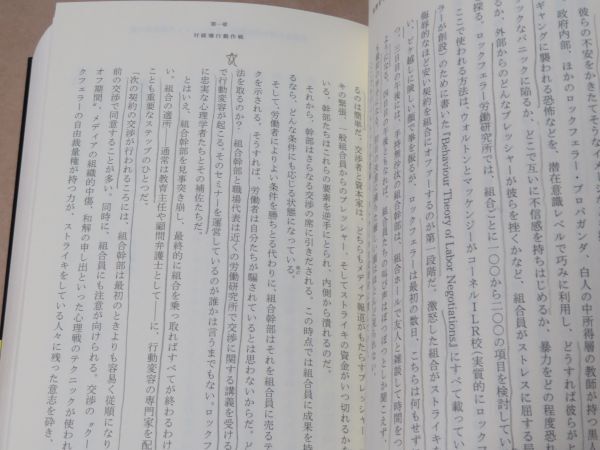 彼らの不安をかきたてそうなイメージ
、政府内部、ほかのロックフェラー・プロパガンダ、白人の中所得層の教師が持つ黒人
ギャングに襲われる恐怖などを、潜在意識レベルで巧みに利用し、どうすれば彼らが
なパニックに陥るか、どこで互いに不信感を持ちはじめるか、暴力をどの程度恐れ
るか、外部からのどんなプレッシャーが彼らを挫くかなど、組合員がストレスに屈する局
探る。ロックフェラー労働研究所では、組合ごとに一〇〇から二〇〇の項目を検討してい
ここで使われる方法は、ウォルトンとマッケンジーがコーネルILR校（実質的にロック
ラーが創設）のために書いた『Behaviour Theory of Labor Negotiations』にすべて載ってい
侮辱的なほど安い契約を組合にオファーするのが第一段階だ。激怒した組合がストライキ
い、ピケ越しに険しい顔で拳を振るが、ロックフェラーは最初の数日、こちらは何もせず
。三日目の午後には、手持無沙汰の組合幹部は、組合ホールで友人と雑談して時間を
第一章
対破壊行動作戦
るのは簡単だ。労働者と資本家は、どちらもメディア報道がもたらすプレッシャー
キの緊張、一般組合員からのプレッシャー、そしてストライキの資金がいつ切れるか
いる。幹部たちはこれらの要素を逆手にとられ、内側から潰れるのだ。
それから、幹部はさらなる交渉の席に引きだされる。この時点では組合員に成果を持
るなら、どんな条件にも応じる状態になっている。
そして、労働者によりよい条件を勝ちとる代わりに、組合幹部はそれを組合員に売るテ
クを示される。そうすれば、労働者は自分たちが騙されているとは思わないからだ。ど
法を取るのか？　組合幹部と職場代表は近くの労働研究所で交渉に関する講義を受ける
で行動変容が起こる。そのセミナーを運営しているのが誰かは言うまでもない。ロックフ
に忠実な心理学者たちとその補佐たちだ。
とはいえ、組合幹部を見事突き崩し、最終的に組合を乗っ取ればすべてが終わるわけ
い。組合の適所――通常は教育主任や顧問弁護士として――に、行動変容の専門家を配
ことも重要なステップのひとつだ。
次の契約の交渉が行われるころには、組合幹部は最初のときよりも容易く従順になり
前の交渉で同意することが多い。同時に、組合員にも注意が向けられる。交渉の“クー
オフ期間”、メディアの組織的中傷、和解の申し出といった心理戦のテクニックが使われ
クフェラーの自由裁量権が持つ力が、ストライキをしている人々に残った意志を砕き、